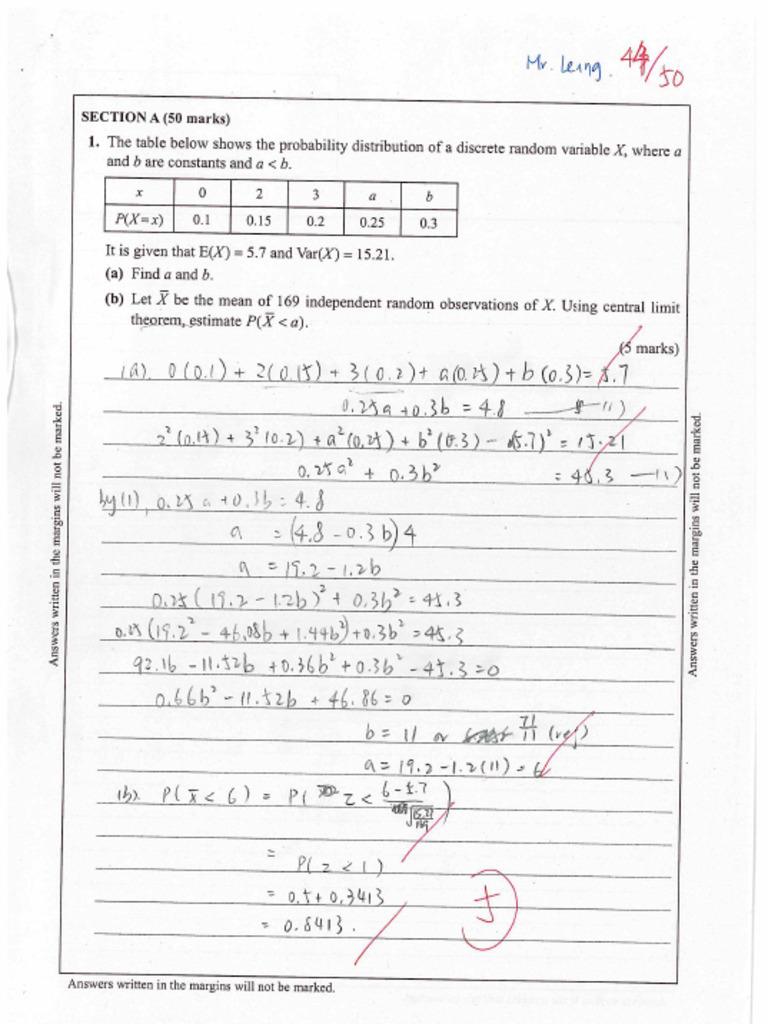 Mr. Leung. 44/50
SECTION A (50 marks)
1. The table below shows the probability distribution of a discrete random variable X, where a
and b are constants and a < b.
x 0 2 3 a b
P(X=x) 0.1 0.15 0.2 0.25 0.3
It is given that E(X) = 5.7 and Var(X) = 15.21.
(a) Find a and b.
(b) Let X̄ be the mean of 169 independent random observations of X. Using central limit
theorem, estimate P(X̄ < a).
(5 marks)
(a). 0(0.1) + 2(0.15) + 3(0.2) + a(0.25) + b(0.3) = 5.7
0.25a + 0.3b = 4.8 — (1)
2²(0.15) + 3²(0.2) + a²(0.25) + b²(0.3) - (5.7)² = 15.21
0.25a² + 0.3b² = 45.3 — (1)
by (1), 0.25a + 0.3b = 4.8
a = (4.8 - 0.3b)4
a = 19.2 - 1.2b
0.25(19.2 - 1.2b)² + 0.3b² = 45.3
0.25(19.2² - 46.08b + 1.44b²) + 0.3b² = 45.3
92.16 - 11.52b + 0.36b² + 0.3b² - 45.3 = 0
0.66b² - 11.52b + 46.86 = 0
b = 11 or 71/11 (rej)
a = 19.2 - 1.2(11) = 6
(b). P(x̄ < 6) = P( z < (6 - 5.7)/√(15.21/169) )
= P(z < 1)
= 0.5 + 0.3413
= 0.8413.
5
Answers written in the margins will not be marked.
Answers written in the margins will not be marked.
Answers written in the margins will not be marked.